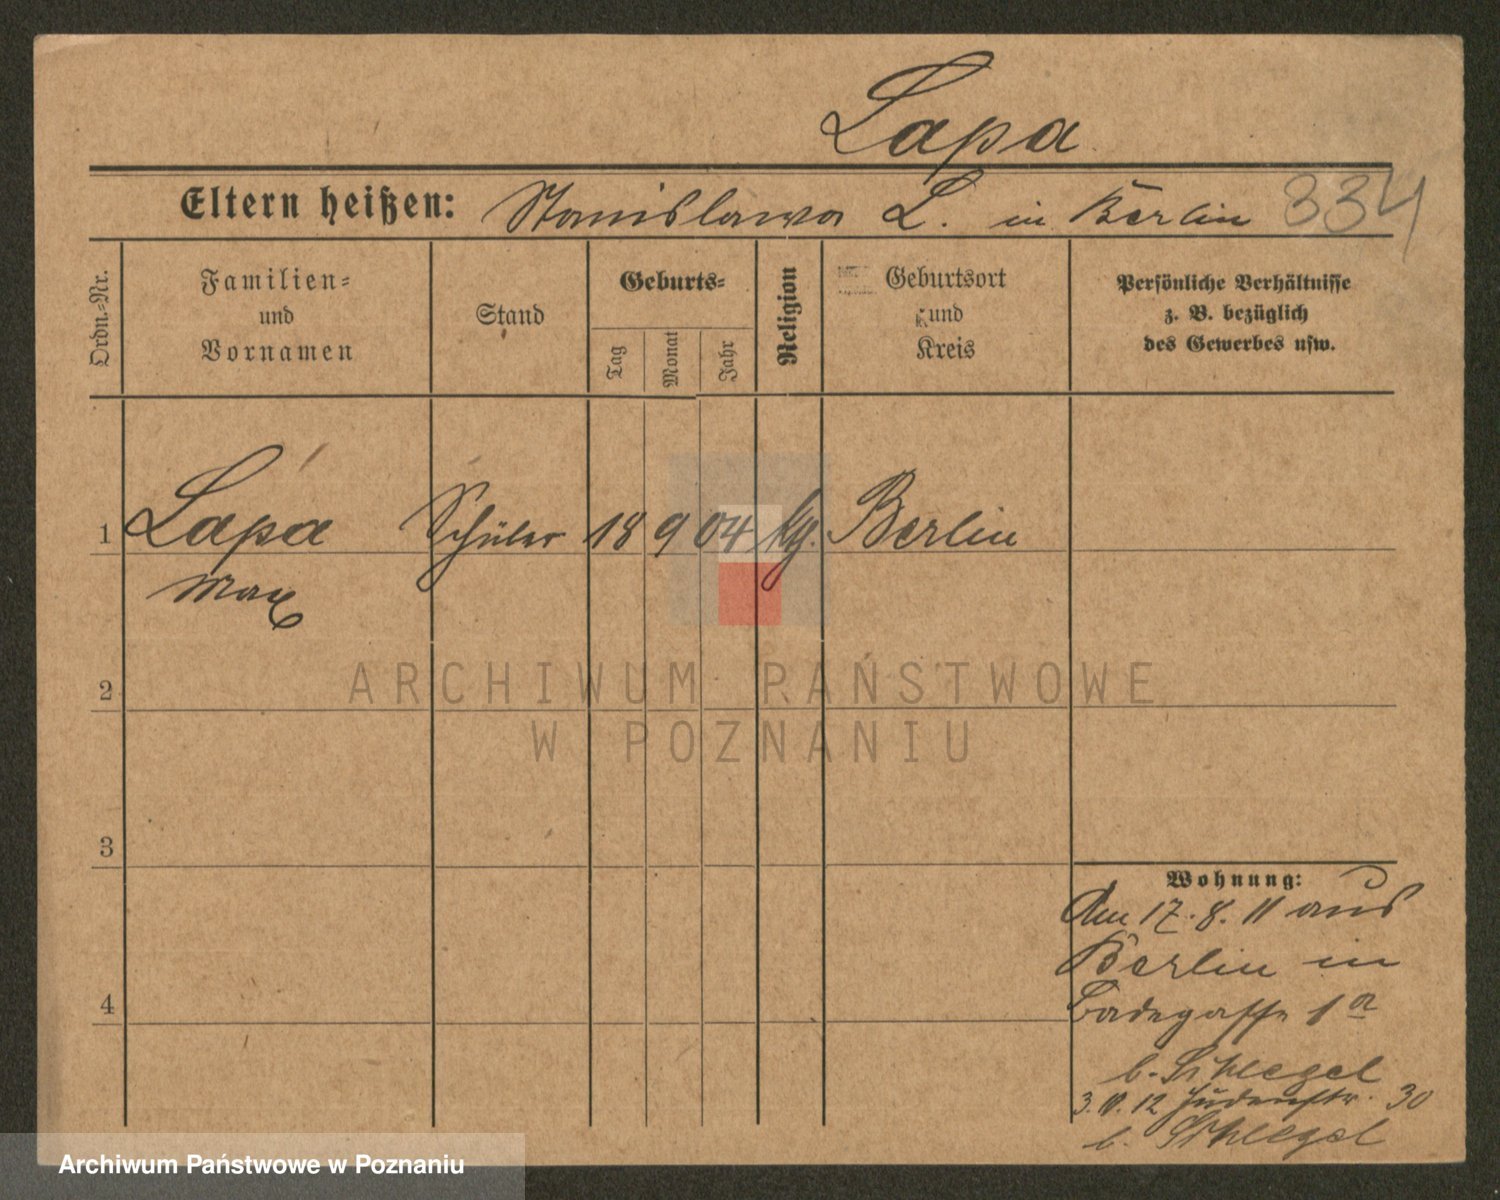 Lapa
Eltern heißen: Stanislawa L. in Berlin 334
Ordn.-Nr.
Familien-
und
Vornamen
Stand
Geburts-
Tag
Monat
Jahr
Religion
Geburtsort
und
Kreis
Persönliche Verhältnisse
z. B. bezüglich
des Gewerbes usw.
1 Lapa Schüler 18 9 04 kg. Berlin
Max
2
3
4
ARCHIWUM PAŃSTWOWE
W POZNANIU
Wohnung:
Am 17. 8. 11 aus
Berlin in
Badegasse 1a
b. Schlegel
3. 12 Judenstr. 30
b. Schlegel
Archiwum Państwowe w Poznaniu